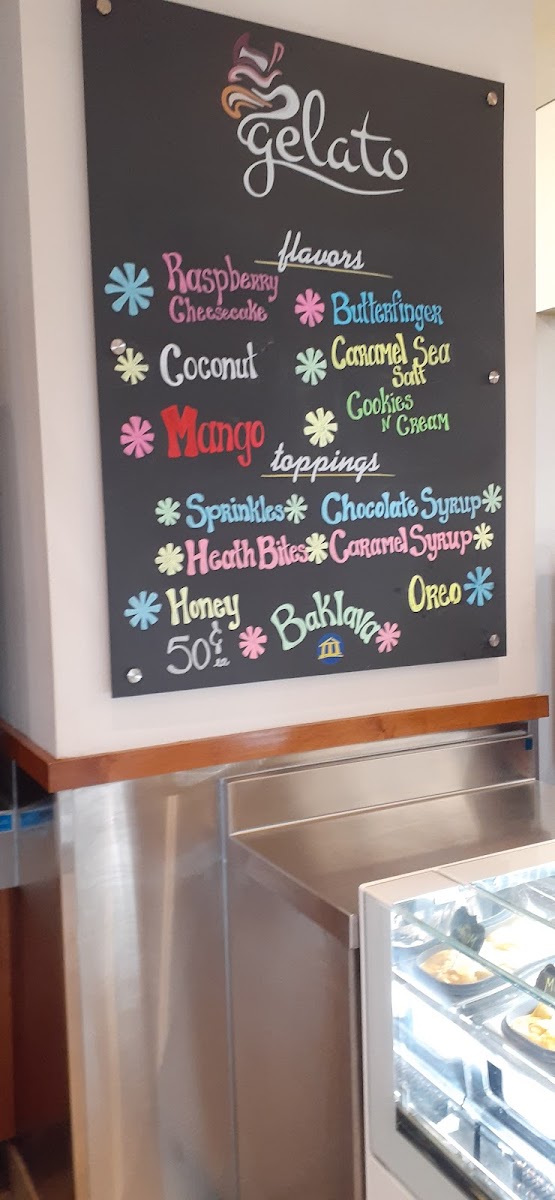 gelato
flavors
Raspberry
Cheesecake
Butterfinger
Coconut
Caramel Sea
Salt
Mango
Cookies
N Cream
toppings
Sprinkles Chocolate Syrup
Heath Bites Caramel Syrup
Honey Baklava Oreo
50¢
ea